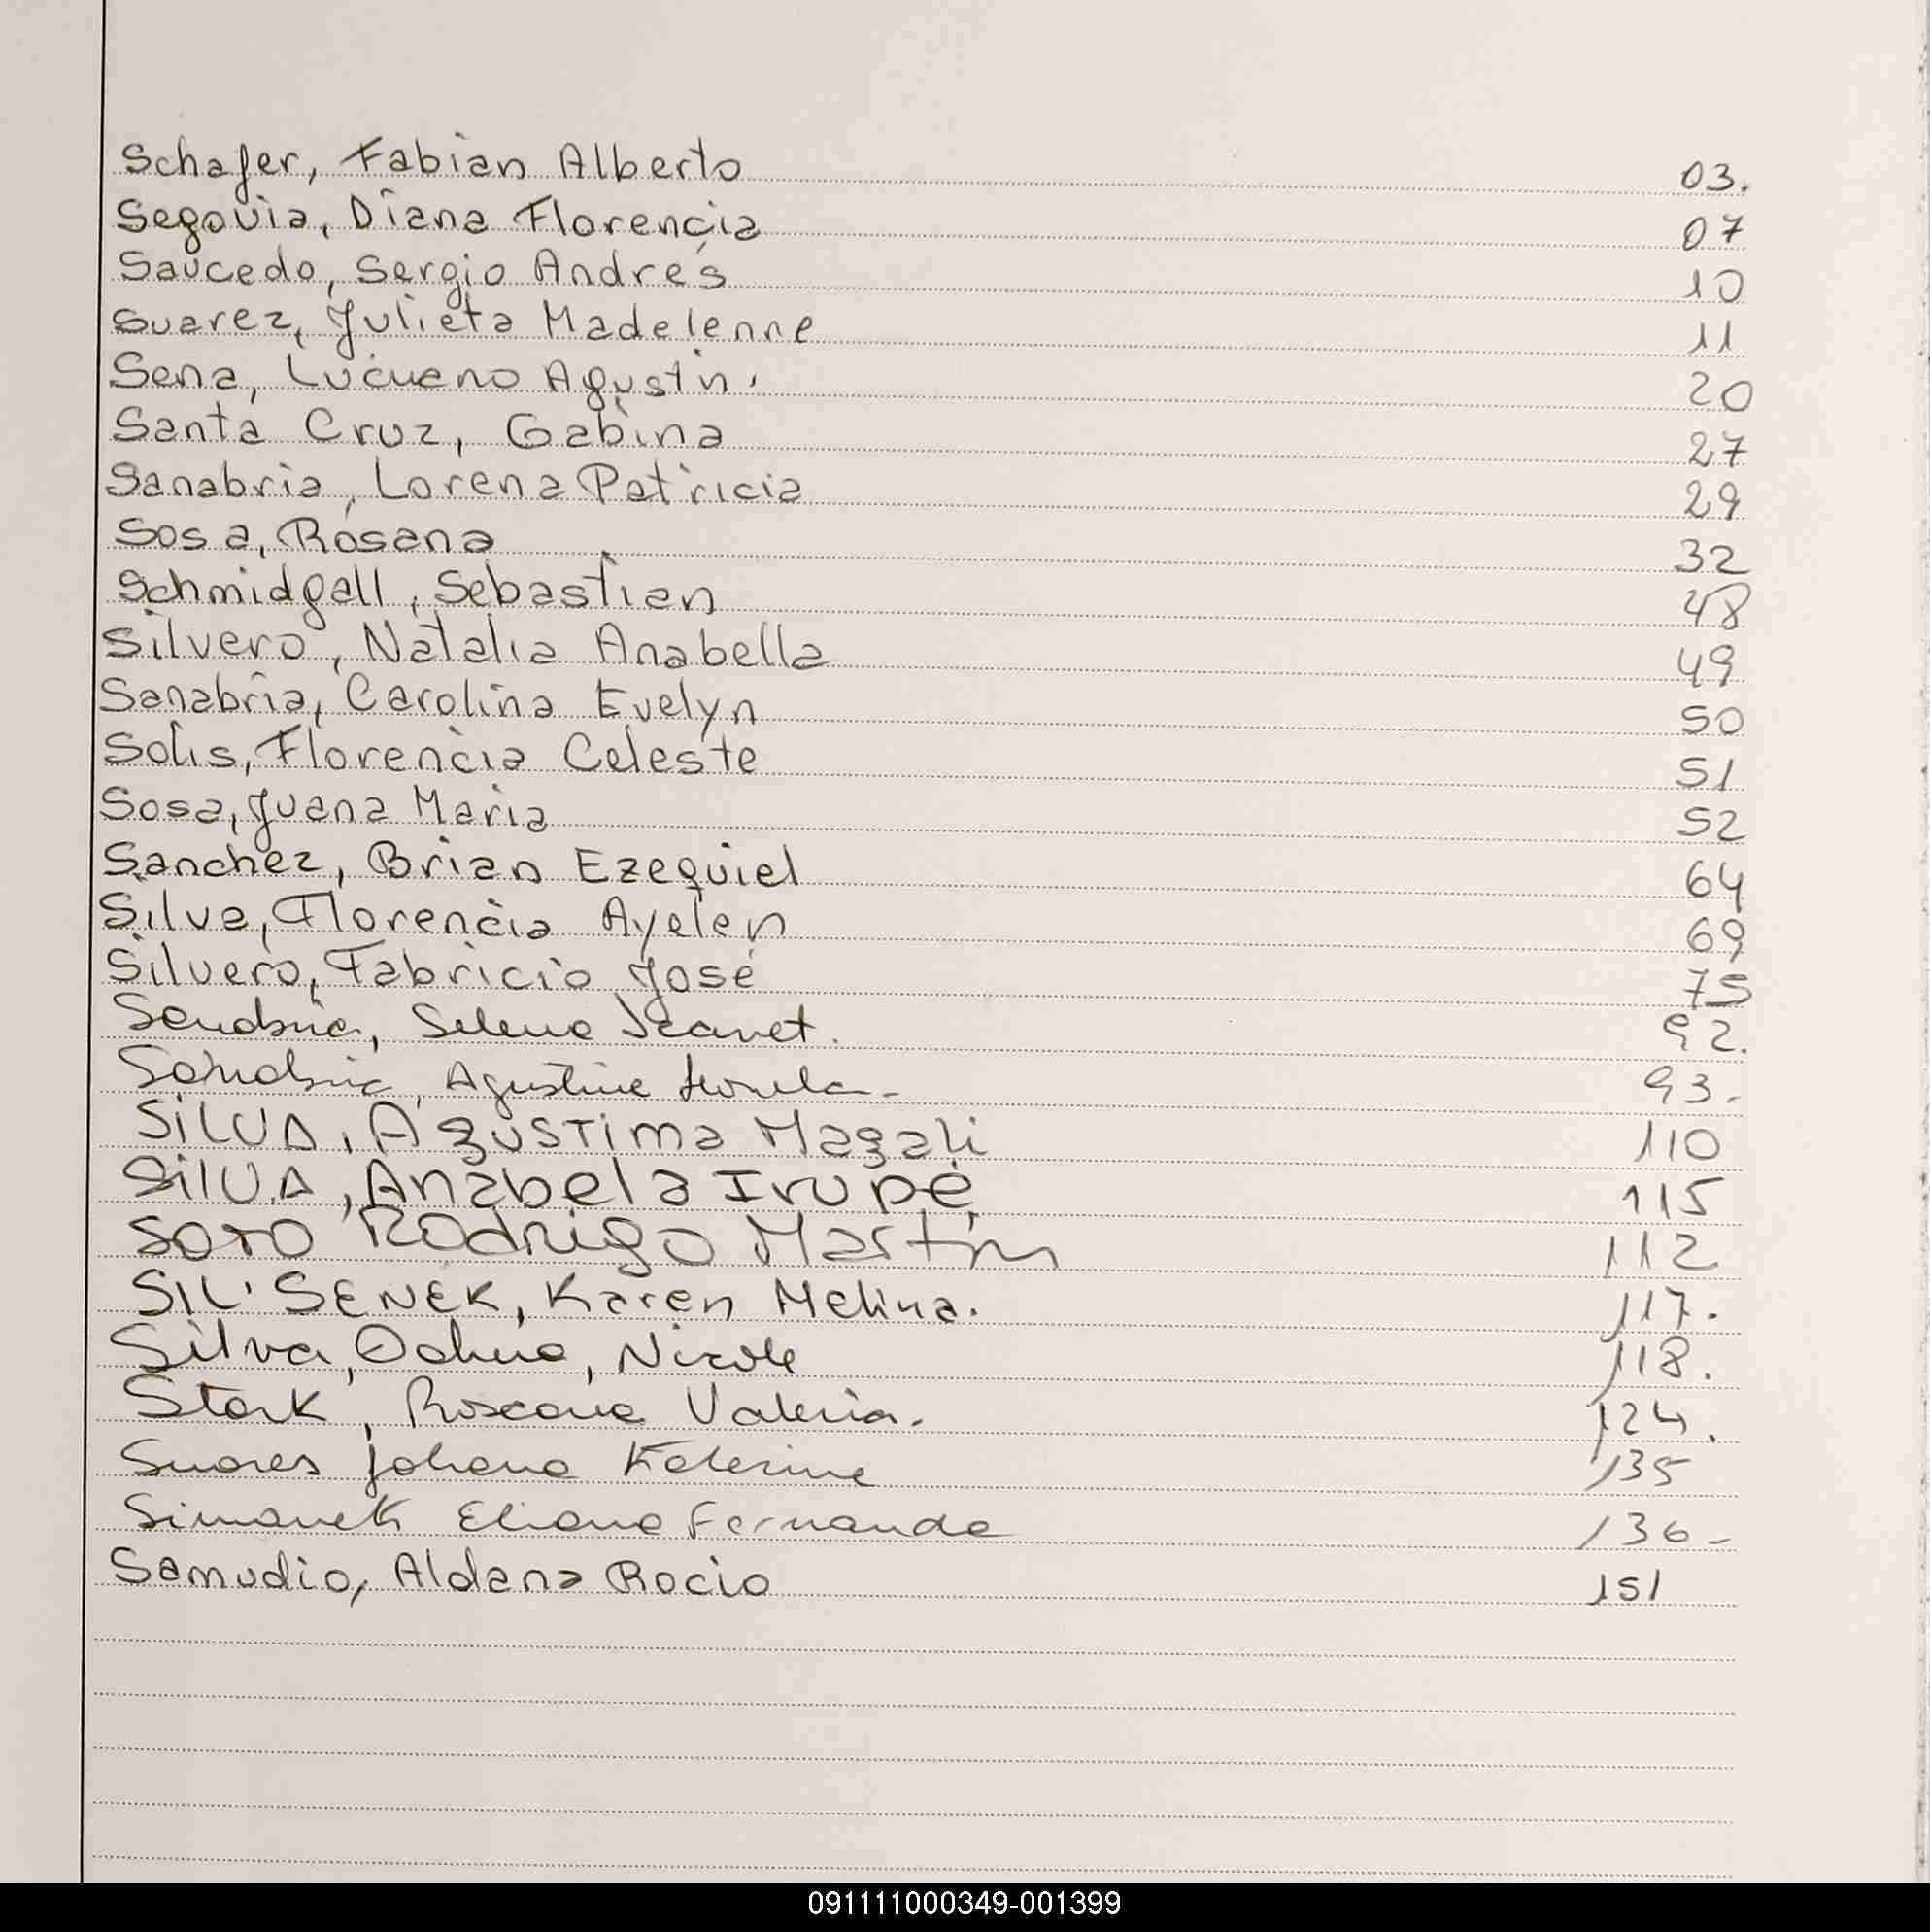 Schafer, Fabian Alberto 03.
Segovia, Diana Florencia 07
Saucedo, Sergio Andrés 10
Suarez, Julieta Madelenne 11
Sena, Luciano Agustin. 20
Santa Cruz, Gabina 27
Sanabria, Lorena Patricia 29
Sosa, Rosana 32
Schmidgall, Sebastian 48
Silvero, Natalia Anabella 49
Sanabria, Carolina Evelyn 50
Solis, Florencia Celeste 51
Sosa, Juana Maria 52
Sanchez, Brian Ezequiel 64
Silva, Florencia Ayelen 69
Silvero, Fabricio José 75
Sanabria, Selena Jeanet. 92.
Sanabria, Agustina 93.
SILVA, Agustina Magali 110
SILVA, Anabela Irupé, 115
SOTO Rodrigo Martin 112
SENEK, Karen Melina. 117.
Silva, Nicole 118.
Stark, Roxana Valeria. 124.
Suares Johana Katerine 135
Simanek Eliana Fernanda 136-
Samudio, Aldana Rocio 151
091111000349-001399